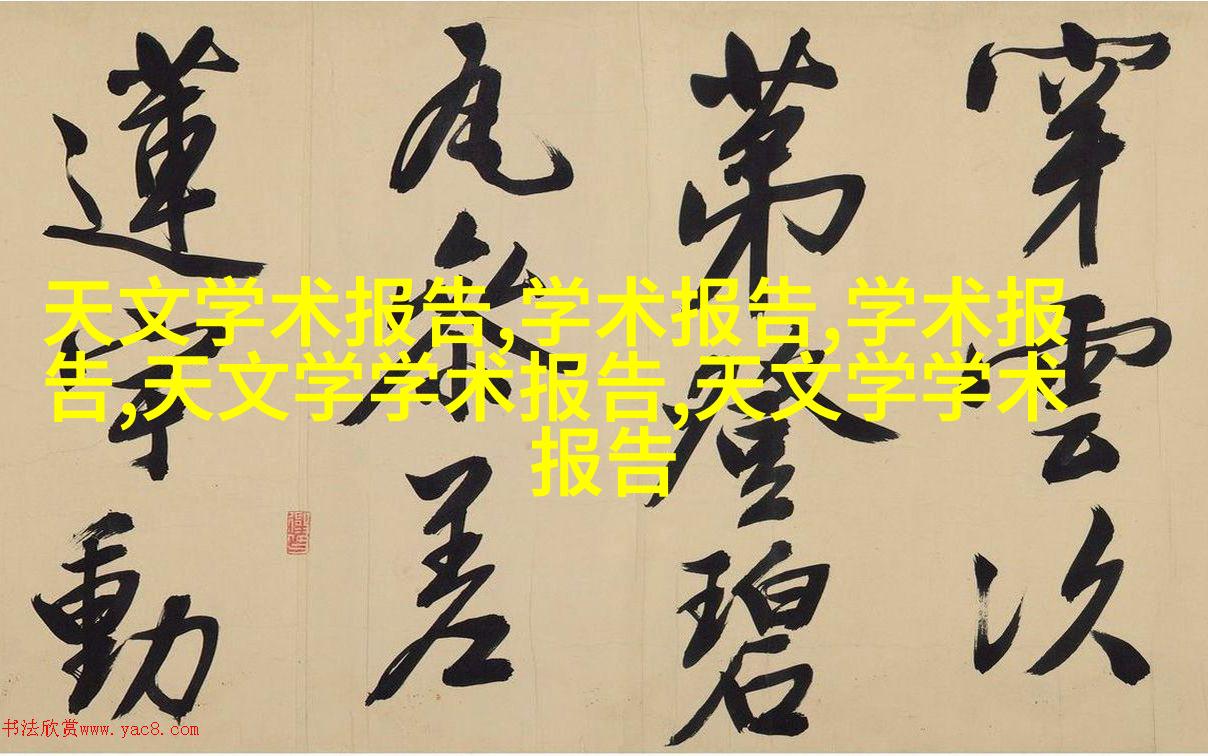 穿雲次
苐登碧
瓦參差
蓮宇動
天文学术报告,学术报告,学术报
告,天文学学术报告,天文学学术
报告
书法欣赏www.yac8.com